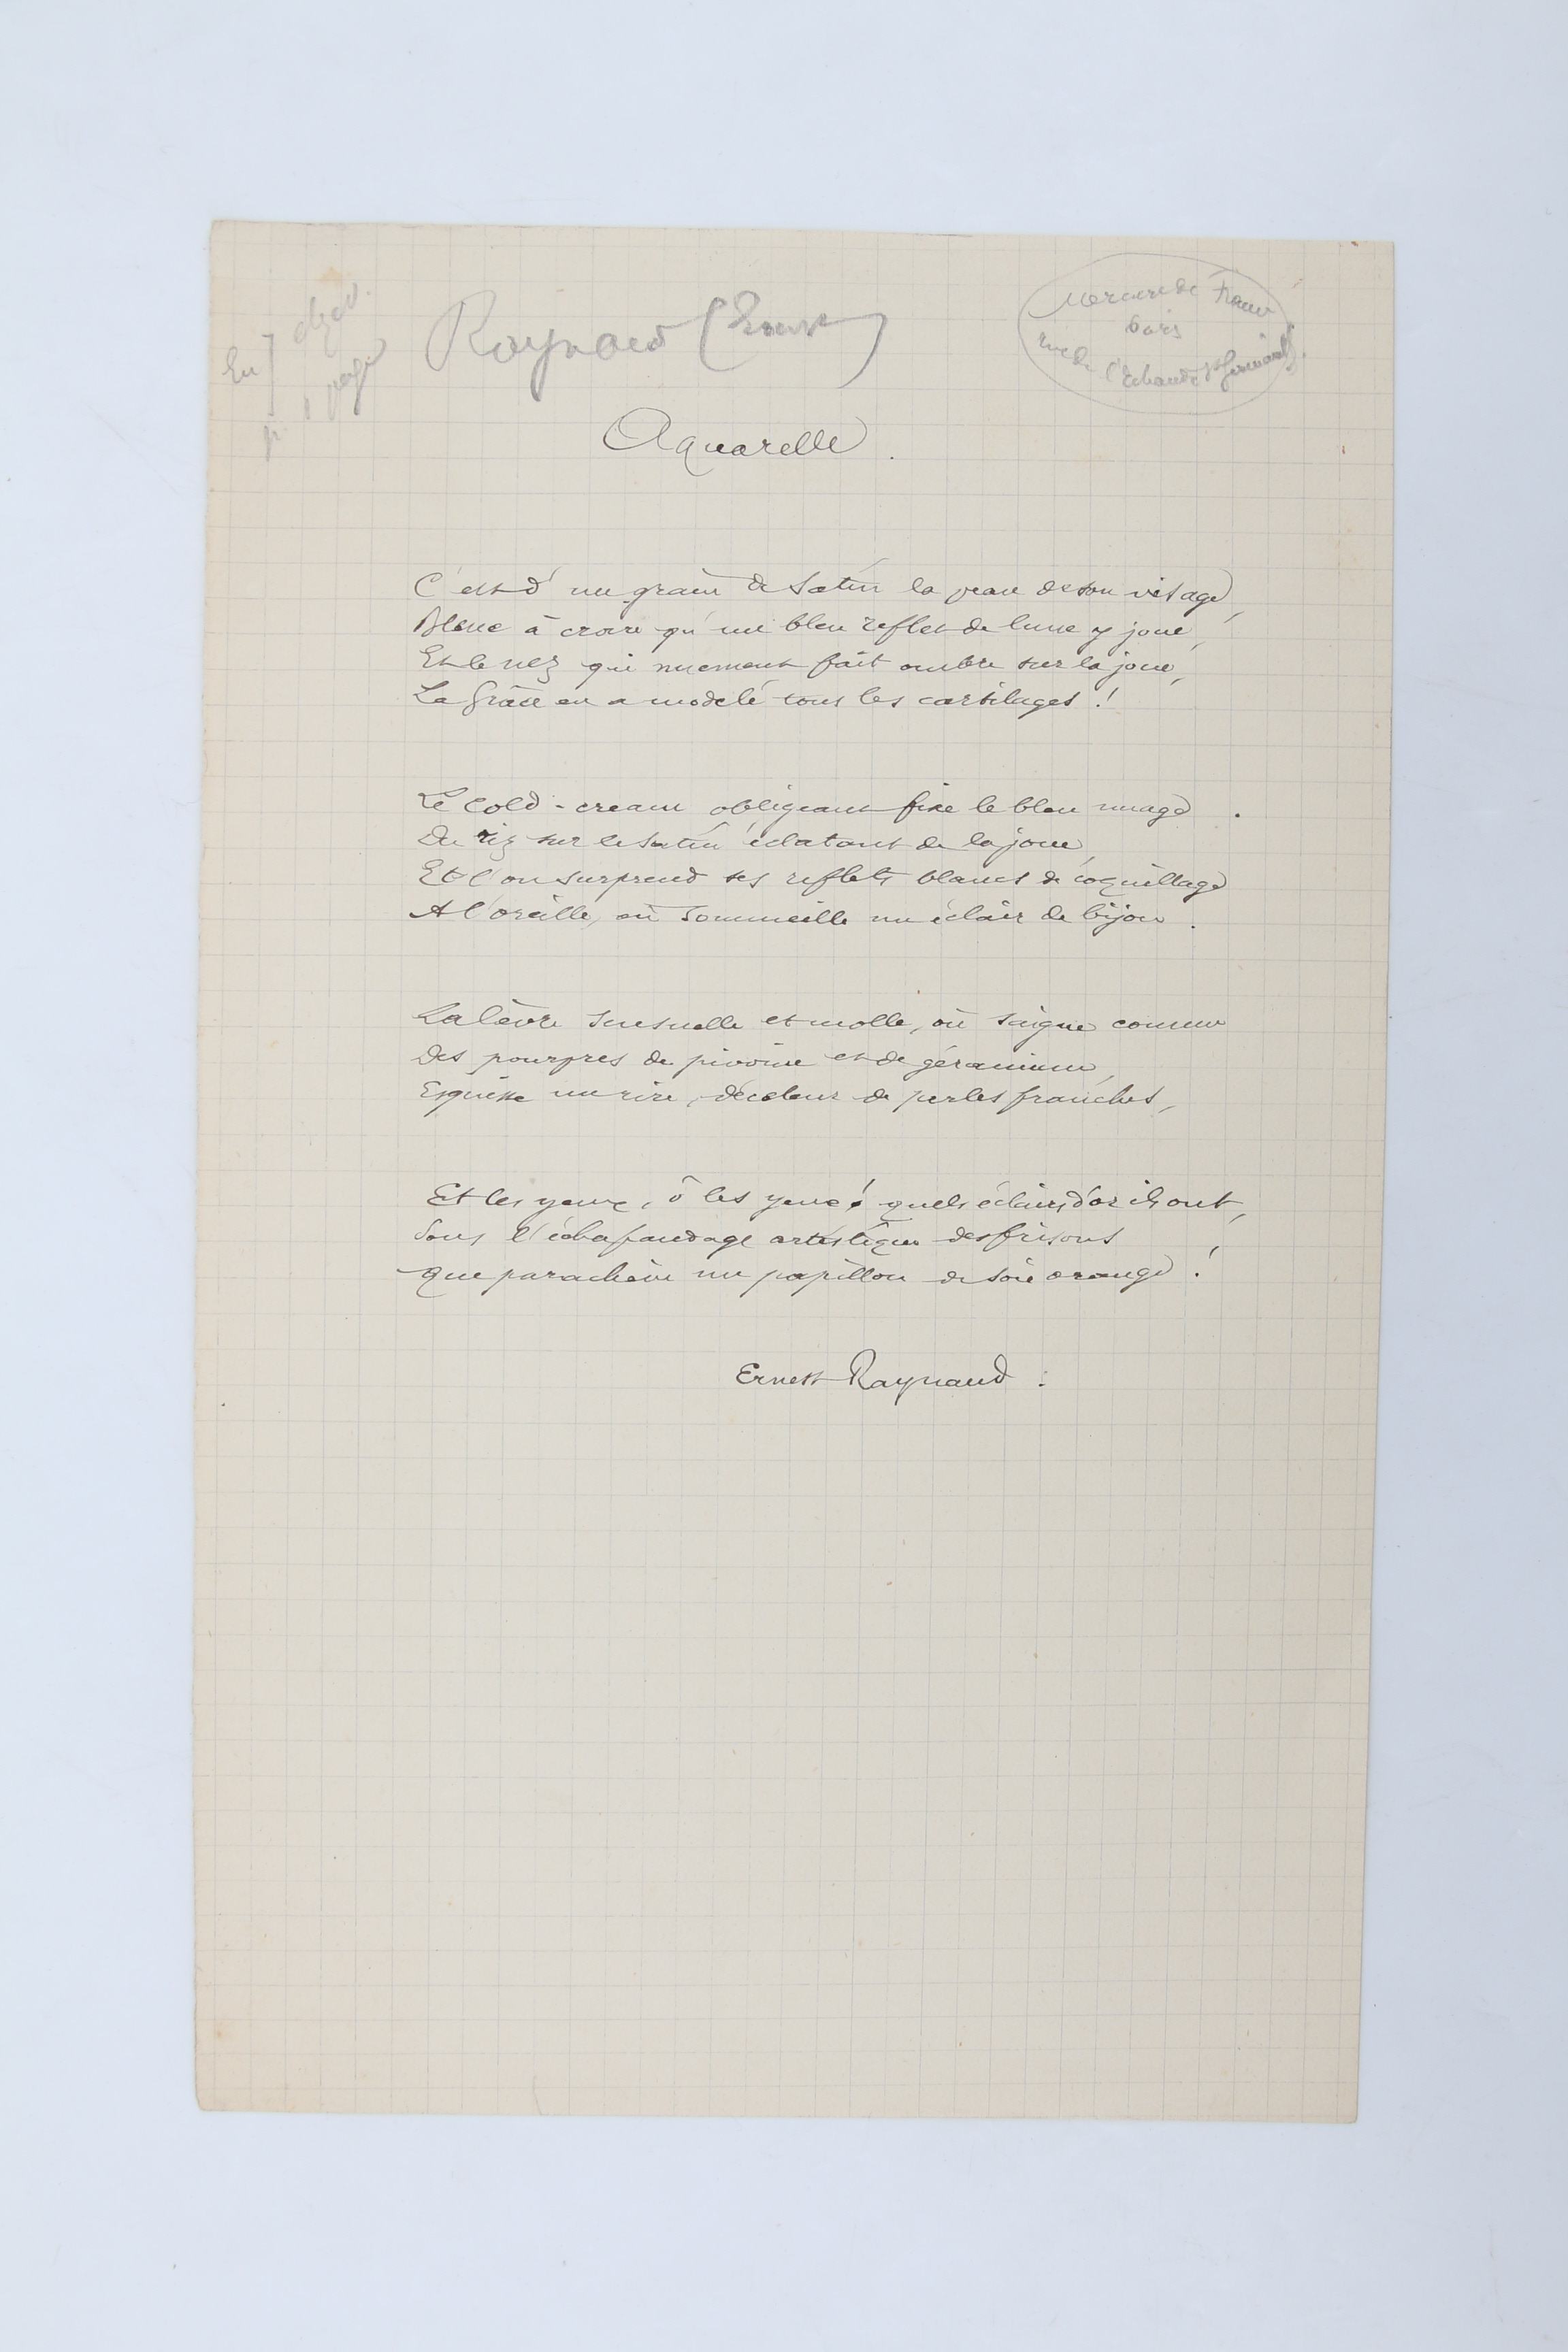 Raynaud (Ernest)
Mercure de France
Paris
rue de l'Echaudé St Germain
En
p. 1 page
Aquarelle.
C'est d'un grain de satin la peau de son visage,
Blanc à croire qu'un bleu reflet de lune y joue,
Et le nez qui nuement fait ombre sur la joue,
La Grâce en a modelé tous les cartilages !
Le Cold-cream obligeant fixe le bleu nuage
Du riz sur le satin éclatant de la joue,
Et l'on surprend ses reflets blancs de coquillage
A l'oreille, où sommeille un éclair de bijou.
La lèvre sensuelle et molle, où saigne comme
Des pourpres de pivoine et de géranium,
Esquisse un rire, déceleur de perles franches,
Et les yeux, ô les yeux ! quels éclairs d'or ils ont,
Sous l'échafaudage artistique des frisons
Que parachève un papillon de soie orange !
Ernest Raynaud.